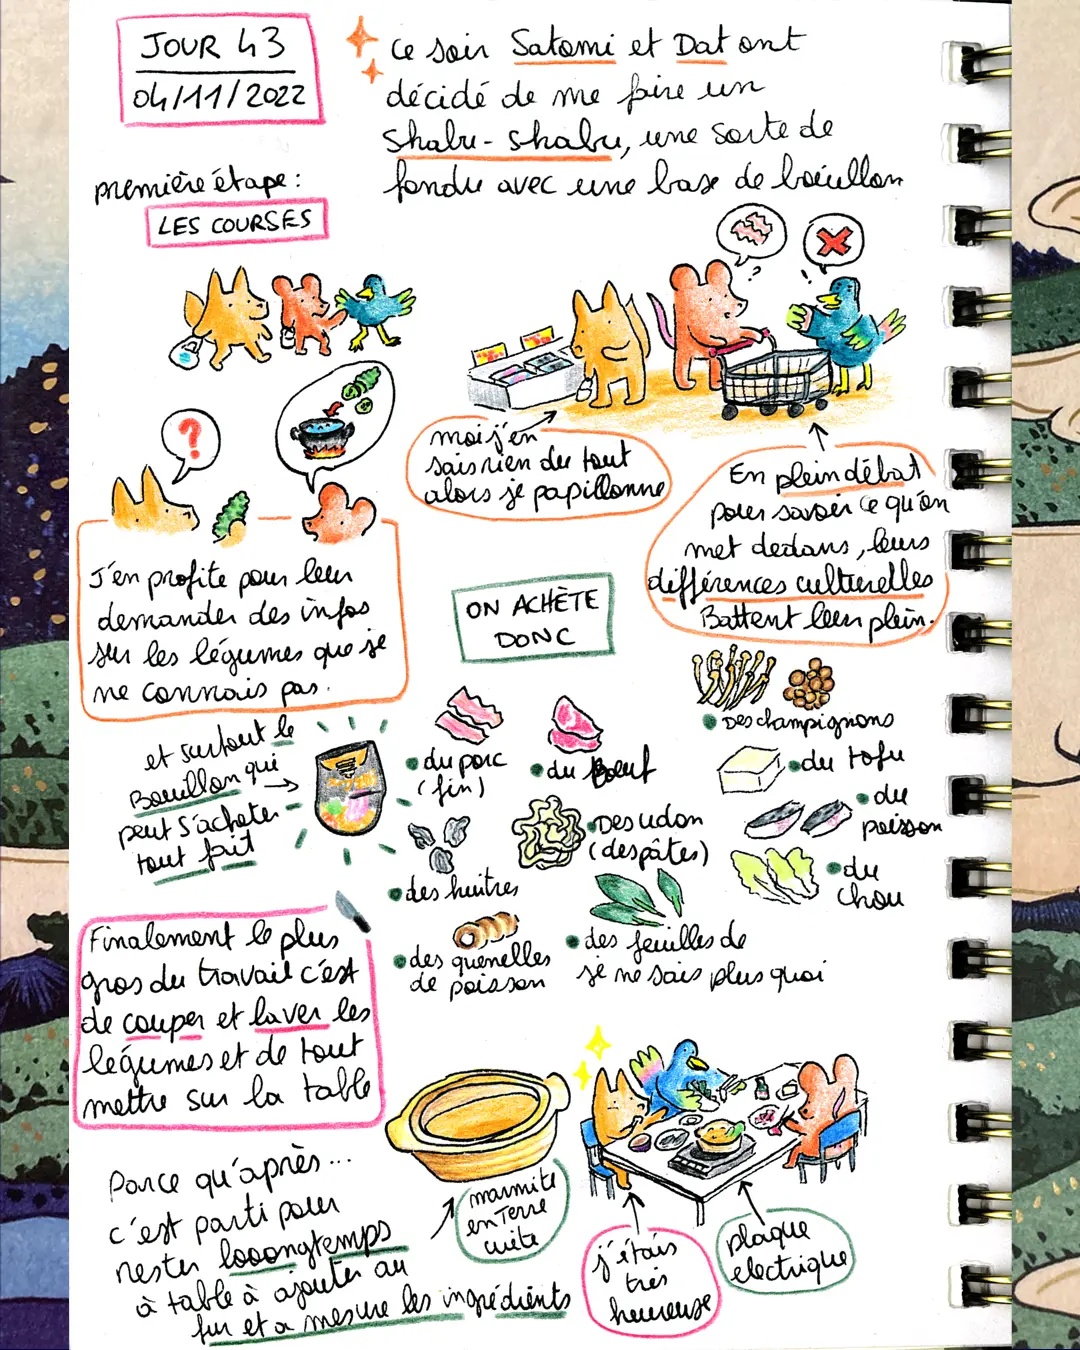 JOUR 43
04/11/2022
Ce soir Satomi et Dat ont
décidé de me faire un
shabu-shabu, une sorte de
fondu avec une base de bouillon
première étape :
LES COURSES
?
?
!
moi j'en
sais rien du tout
alors je papillonne
En plein débat
pour savoir ce qu'on
met dedans, leurs
différences culturelles
Battent leur plein.
?
J'en profite pour leur
demander des infos
sur les légumes que je
ne connais pas.
ON ACHÈTE
DONC
et surtout le
Bouillon qui
peut s'acheter
tout fait
• du porc
(fin)
• du Boeuf
• Des champignons
• du tofu
• des huîtres
• Des udon
(des pâtes)
• du
poisson
• du
chou
• des quenelles
de poisson
• des feuilles de
je ne sais plus quoi
Finalement le plus
gros du travail c'est
de couper et laver les
légumes et de tout
mettre sur la table
Parce qu'après...
c'est parti pour
rester looongtemps
à table à ajouter au
fur et a mesure les ingrédients
marmite
en Terre
cuite
j'étais
très
heureuse
plaque
electrique